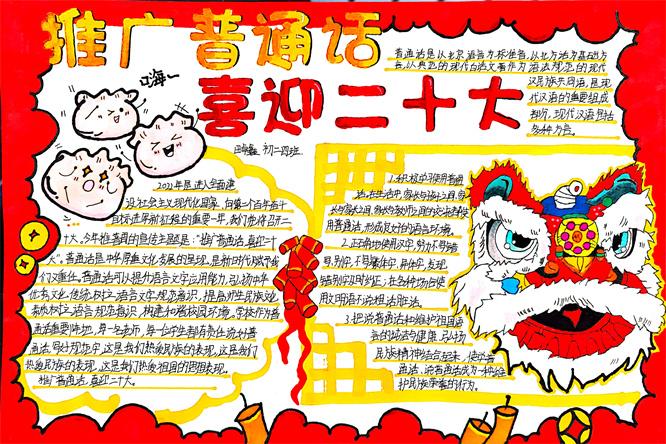 推广普通话
喜迎二十大
普通话是以北京语音为标准音,以北方话为基础方
言,以典范的现代白话文著作为语法规范的现代
汉民族共同语,是现
代汉语的重要组成
部分,现代汉语包括
多种方言。
初二四班
2022年是进入全面建
设社会主义现代化国家,向第二个百年奋斗
目标进军新征程的重要一年,我们党将召开二
十大。今年推普周的宣传主题是:“推广普通话,喜迎二十
大”。普通话是中华
我们重任。普通话可以提升语言文字应用能力,引领中华
优秀文化传统,树立语言文字规范意识,提高师生民族文化
素质,树立语言规范意识,构建和谐校园环境。学校作为普
通话重要阵地,每一名老师,每一位学生都有责任说好普
通话,写好规范字,这是我们热爱民族的表现,这是我们
热爱民族的表现,这是我们热爱祖国的思想表现。
推广普通话,喜迎二十大。
1.积极学习使用普通
话,在生活中,家长与孩子之间,家
长与家长之间,家长与教师之间的交流要使
用普通话,形成良好的语言环境。
2.正确书写使用汉字,努力不写错
别字,不写繁体字、异体字,发现
错别字及时纠正,在各种场合使
用文明语不说粗话脏话。
3.把说普通话和维护祖国语
言的纯洁与健康,弘扬
民族精神结合起来,使学普
通话、说普通话成为一种维
护民族尊严的行为。